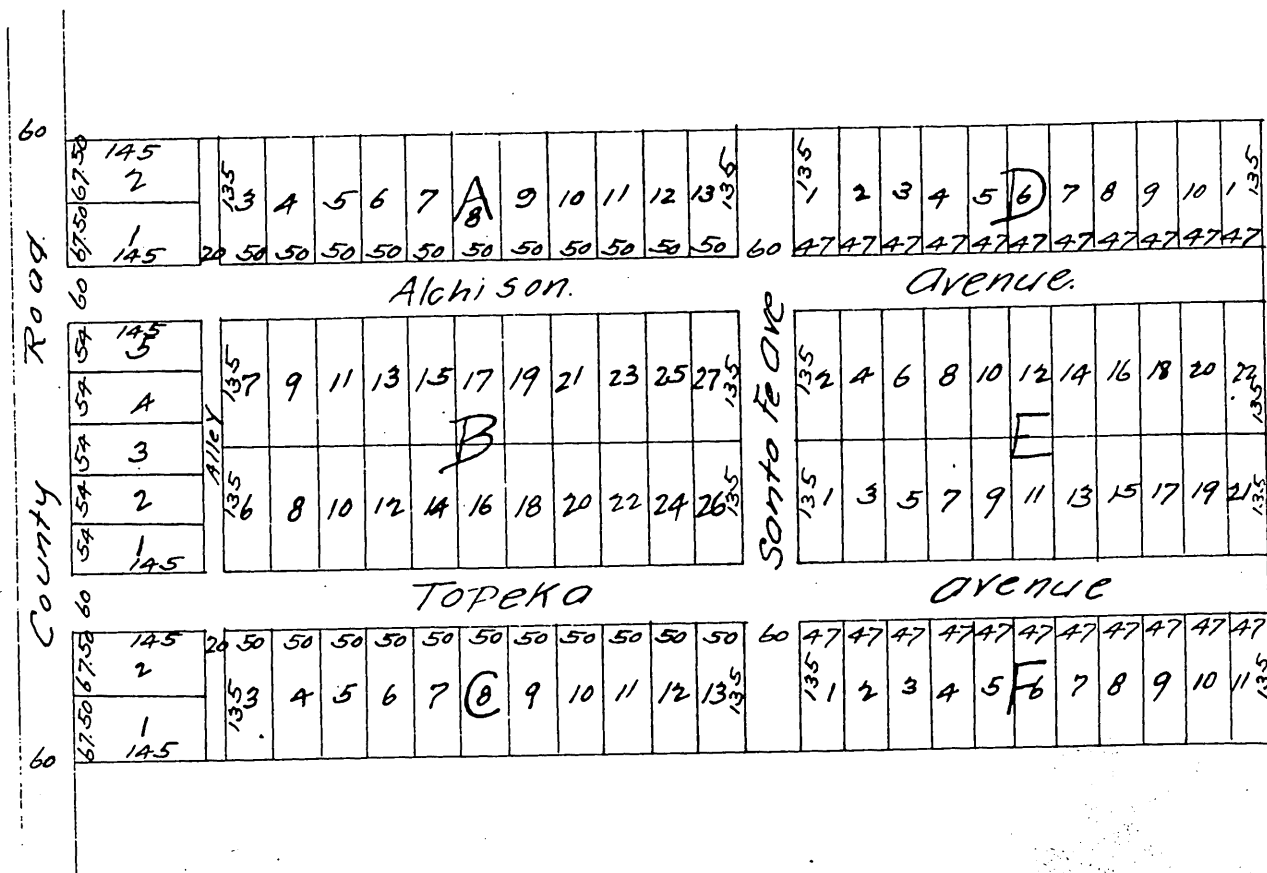 60
67.50 145 2
67.50 1 145
20
135 3 4 5 6 7 A 8 9 10 11 12 13 135
50 50 50 50 50 50 50 50 50 50 50
60
135 1 2 3 4 5 D 6 7 8 9 10 1 135
47 47 47 47 47 47 47 47 47 47 47
County Road
60
Alchison. Avenue.
54 145 5
54 4
54 3
54 2
54 1 145
Alley
135 7 9 11 13 15 17 19 21 23 25 27 135
B
135 6 8 10 12 14 16 18 20 22 24 26 135
Sonto Fe Ave
135 2 4 6 8 10 12 14 16 18 20 22 135
E
135 1 3 5 7 9 11 13 15 17 19 21 135
60
Topeka avenue
67.50 145 2
67.50 1 145
20 50 50 50 50 50 50 50 50 50 50 50
135 3 4 5 6 7 C 8 9 10 11 12 13 135
60
47 47 47 47 47 47 47 47 47 47 47
135 1 2 3 4 5 F 6 7 8 9 10 11 135
60